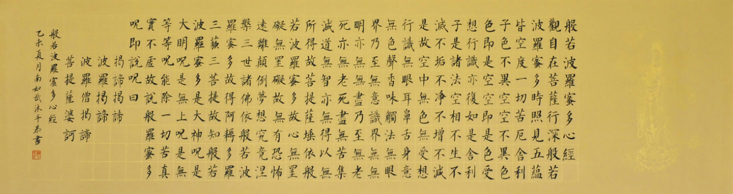 般若波羅蜜多心經
觀自在菩薩行深般若
波羅蜜多時照見五蘊
皆空度一切苦厄舍利
子色不異空空不異色
色即是空空即是色受
想行識亦復如是舍利
子是諸法空相不生不
滅不垢不淨不增不減
是故空中無色無受想
行識無眼耳鼻舌身意
無色聲香味觸法無眼
界乃至無意識界無無
明亦無無明盡乃至無老
死亦無老死盡無苦集
滅道無智亦無得以無
所得故菩提薩埵依般
若波羅蜜多故心無罣
礙無罣礙故無有恐怖
遠離顛倒夢想究竟涅
槃三世諸佛依般若波
羅蜜多故得阿耨多羅
三藐三菩提故知般若
波羅蜜多是大神呪是
大明呪是無上呪是無
等等呪能除一切苦真
實不虛故說般羅蜜多
呪即說呪曰
揭諦揭諦
波羅揭諦
波羅僧揭諦
菩提薩婆訶
般若波羅蜜多心經
乙未夏月南如沐手恭書